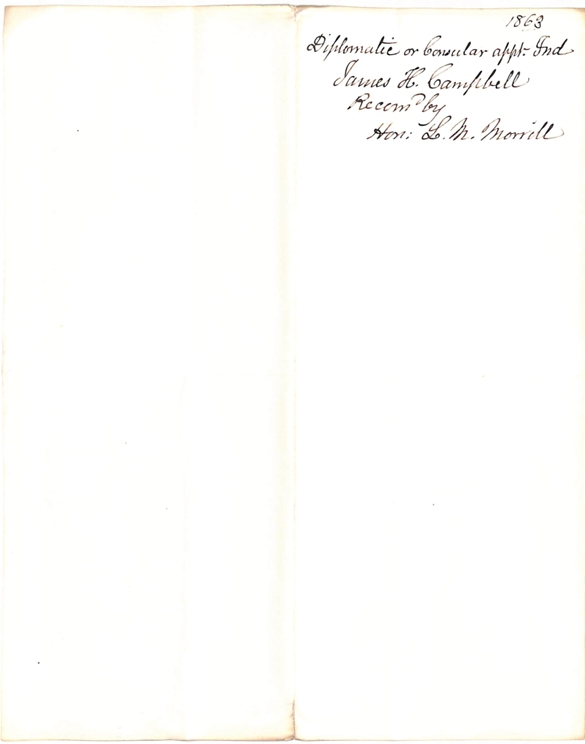 1863
Diplomatic or Consular appt. Ind
James H. Campbell
Recomd by
Hon: L. M. Morrill